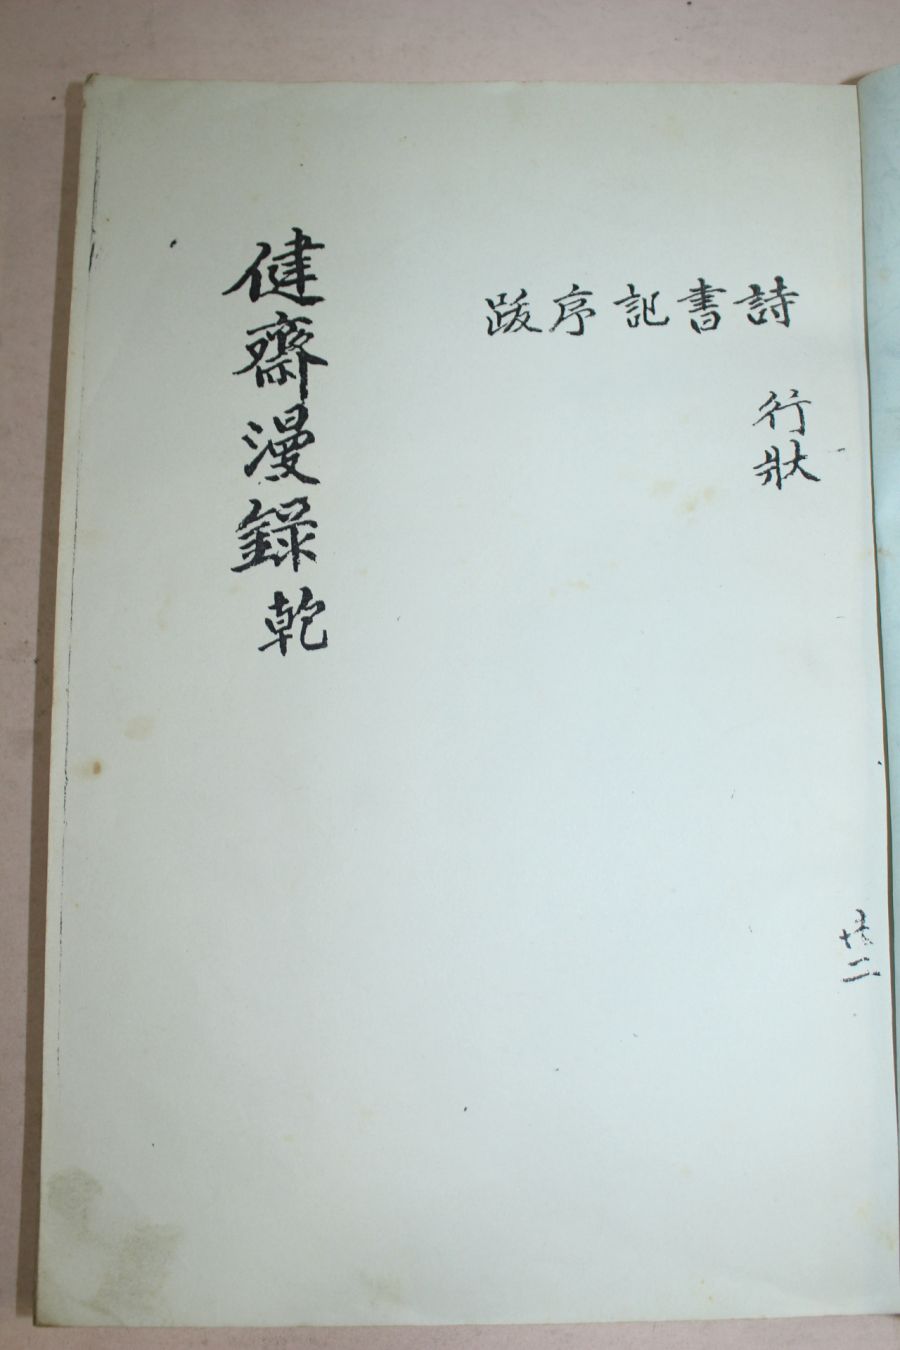 詩書記序跋
行狀
健齋漫錄 乾